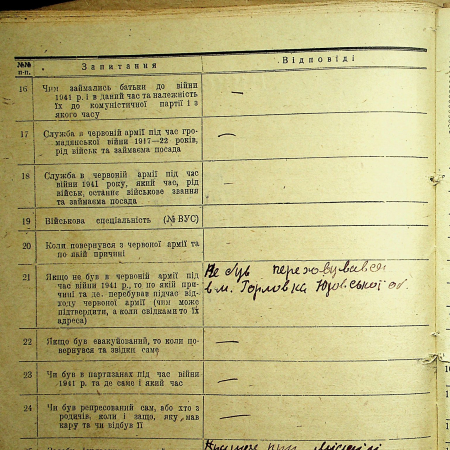 №№ п-п.
Запитання
Відповіді
16 Чим займались батьки до війни
1941 р. і в даний час та належність
їх до комуністичної партії і з
якого часу
—
17 Служба в червоній армії під час гро-
мадянської війни 1917—22 років,
рід військ та займаєма посада
—
18 Служба в червоній армії під час
війни 1941 року, який час, рід
військ, останнє військове звання
та займаєма посада
—
19 Військова спеціальність (№ ВУС)
20 Коли повернувся з червоної армії та
по якій причині
21 Якщо не був в червоній армії під
час війни 1941 р., то по якій при-
чині та де перебував підчас від-
ходу червоної армії (чим може
підтвердити, а коли свідками то їх
адреса)
Не був переховувався
в м. Горловка
22 Якщо був евакуйований, то коли по-
вернувся та звідки саме
—
23 Чи був в партизанах під час війни
1941 р. та де саме і який час
—
24 Чи був репресований сам, або хто з
родичів, коли і защо, яку мав
кару та чи відбув її
—